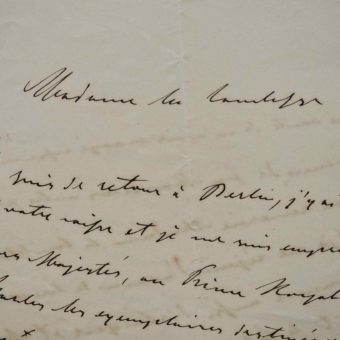 Madame la Comtesse
suis de retour à Berlin, j'y ai
votre caisse et je me suis empre
Majestés, au Prince Royal
toutes les exemplaires destinés